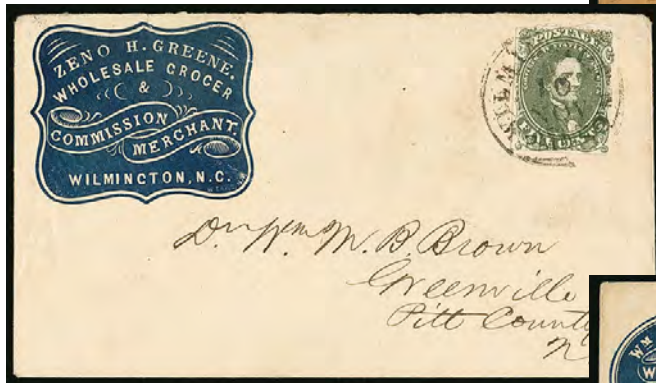 ZENO H. GREENE,
WHOLESALE GROCER
&
COMMISSION
MERCHANT.
WILMINGTON, N.C.
POSTAGE
Dr. Wm. M. B. Brown
Greenville
Pitt County
N
WM